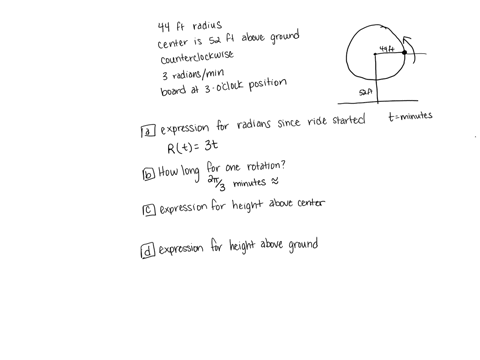 44 ft radius
center is 52 ft above ground
counterclockwise
3 radians/min
board at 3-o'clock position
44ft
52ft
a expression for radians since ride started t=minutes
R(t) = 3t
b How long for one rotation?
2π/3 minutes ≈
c expression for height above center
d expression for height above ground